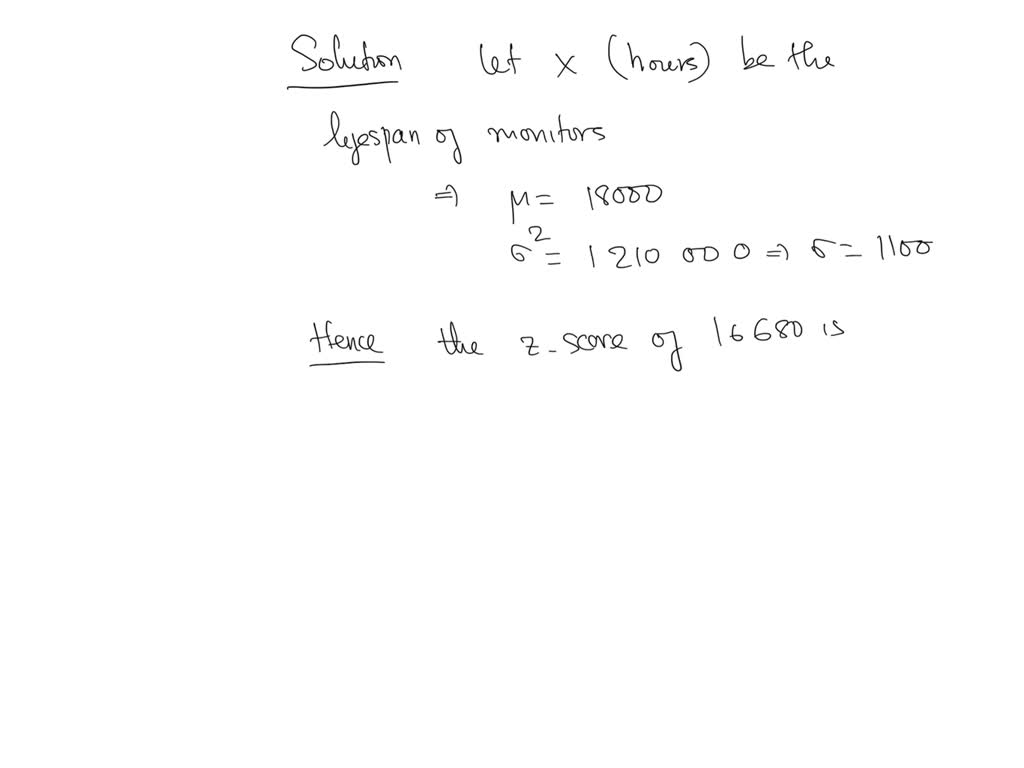 Solution let x (hours) be the
lifespan of monitors
⇒ μ = 18000
σ² = 1 210 000 ⇒ σ = 1100
Hence the z-score of 16680 is